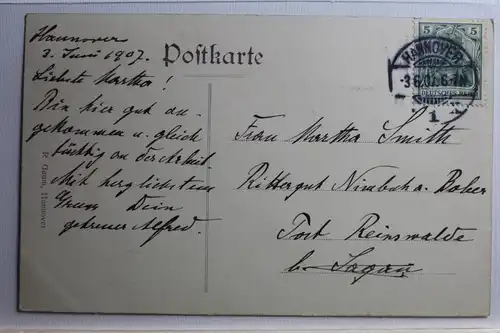 Hannover
3. Juni 1907.
Postkarte
Liebste Martha!
Bin hier gut an-
gekommen u. gleich
tüchtig an der Arbeit.
Mit herzlichstem
Gruss Dein
getreuer Alfred.
Frau Martha Smith
Rittergut Nimbsch a. Bober
Post Reinswalde
b. Sagan
5 5
HANNOVER
3.6.07. 6-7N.
1
DEUTSCHES REICH
Hannover